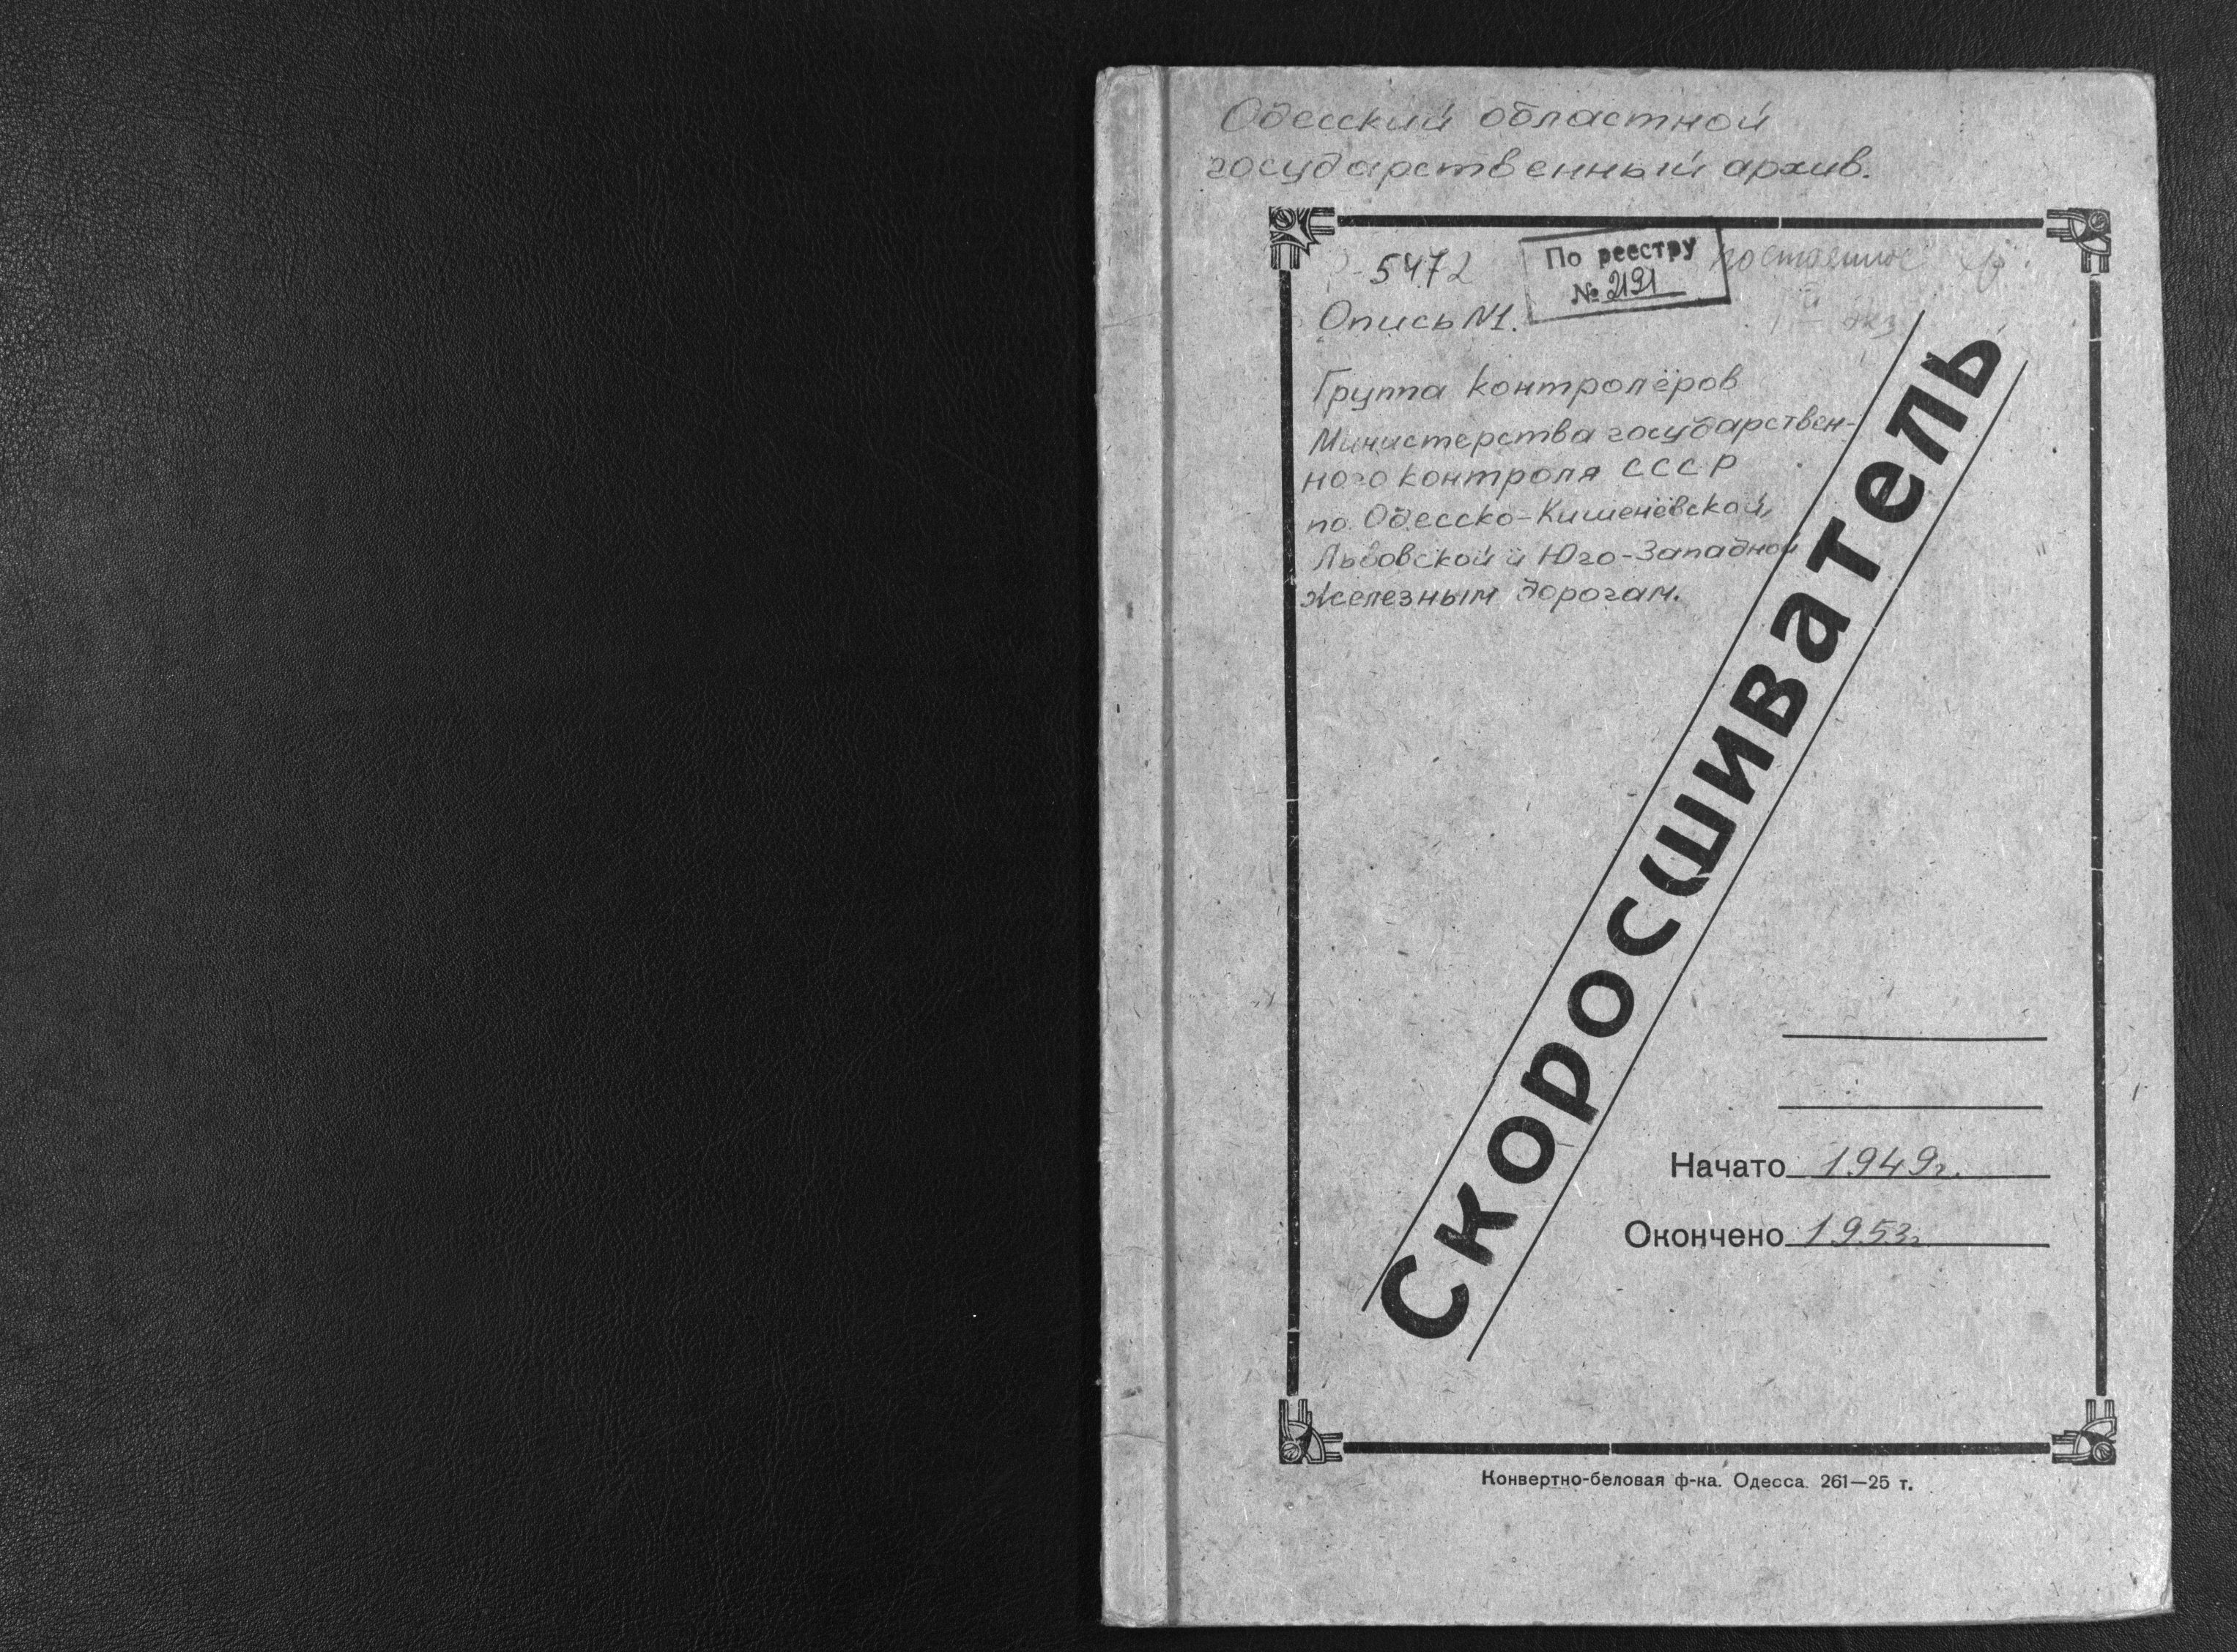 Одесский областной
государственный архив.
-5472
По реестру
№ 2191
постоянное
Опись №1.
Группа контролёров
Министерства государствен-
ного контроля СССР
по Одесско-Кишенёвской,
Львовской и Юго-Западной
железным дорогам.
Скоросшиватель
Начато 1949г.
Окончено 1953г
Конвертно-беловая ф-ка. Одесса 261—25 т.